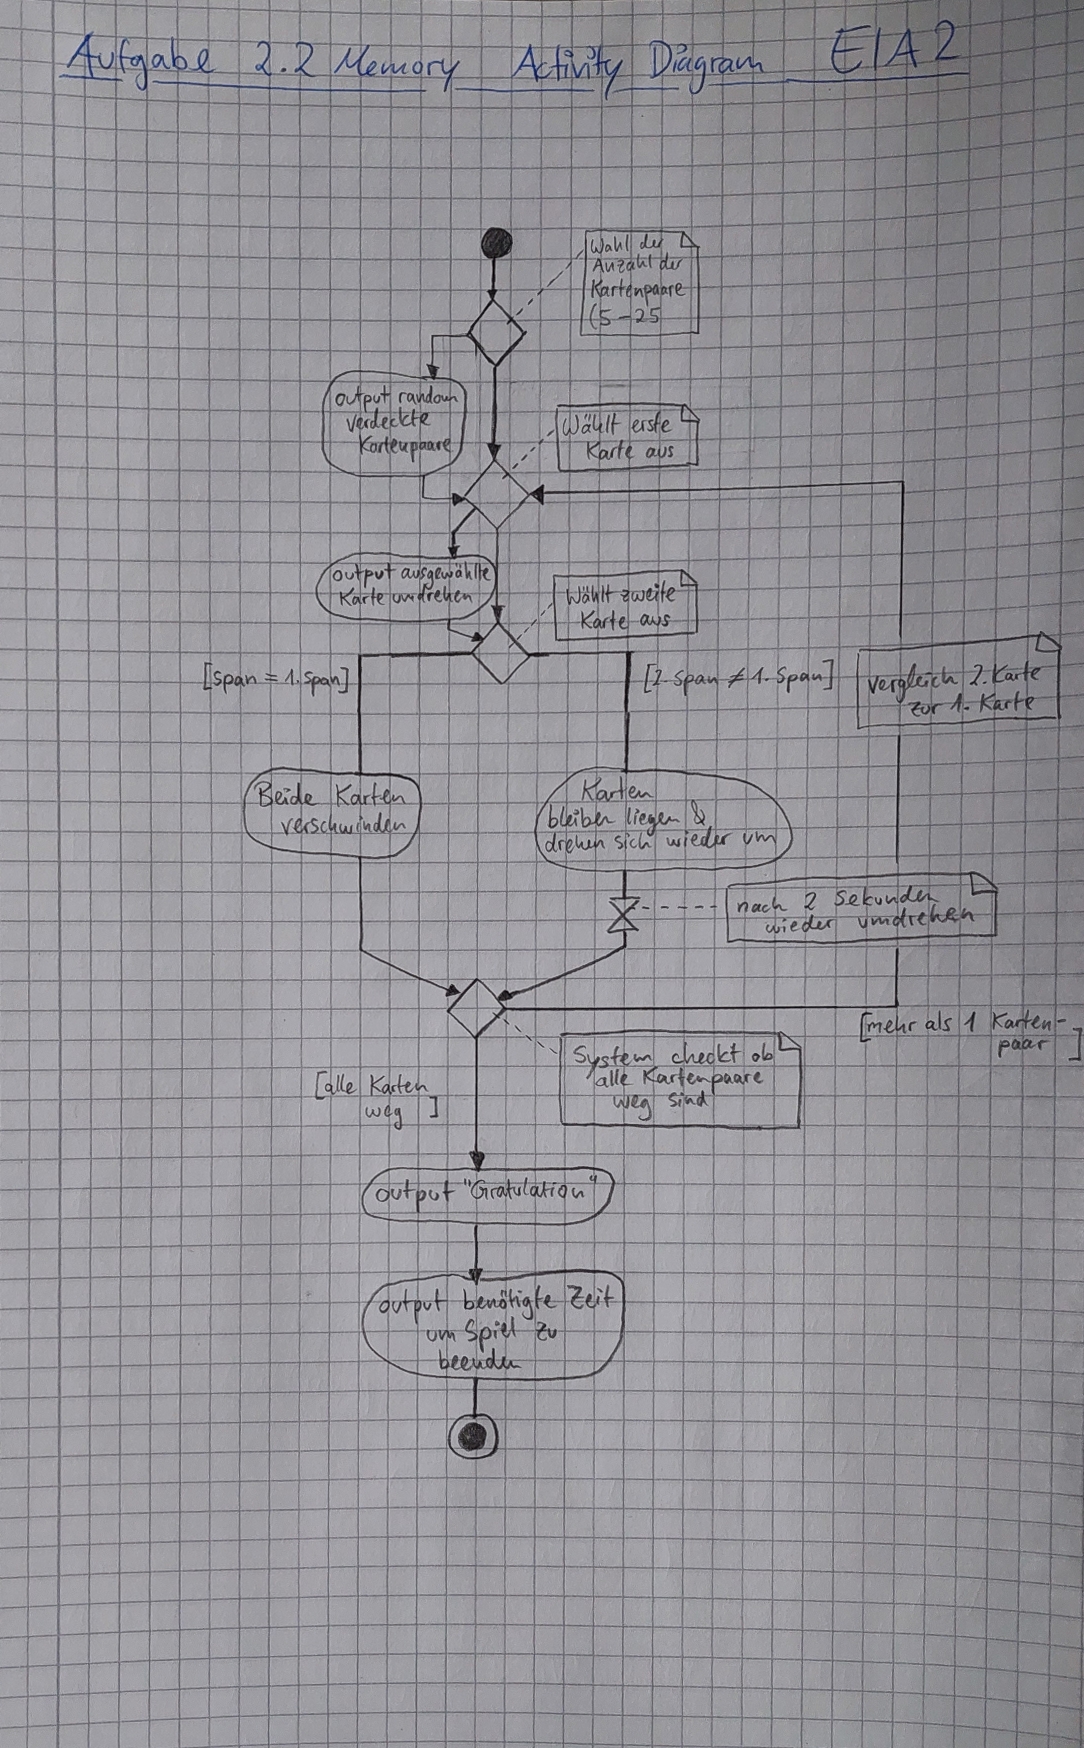 Aufgabe 2.2 Memory Activity Diagram EIA2
Wahl der
Anzahl der
Kartenpaare
(5-25
output random
verdeckte
Kartenpaare
Wählt erste
Karte aus
output ausgewählte
Karte umdrehen
Wählt zweite
Karte aus
[span = 1. span]
[2. span ≠ 1. span]
vergleich 2. Karte
zur 1. Karte
Beide Karten
verschwinden
Karten
bleiben liegen &
drehen sich wieder um
nach 2 Sekunden
wieder umdrehen
[mehr als 1 Karten-
paar ]
System checkt ob
alle Kartenpaare
weg sind
[alle Karten
weg ]
output "Gratulation"
output benötigte Zeit
um Spiel zu
beenden